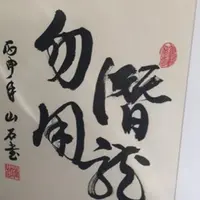 潛龍
勿用
丙申年 山石書